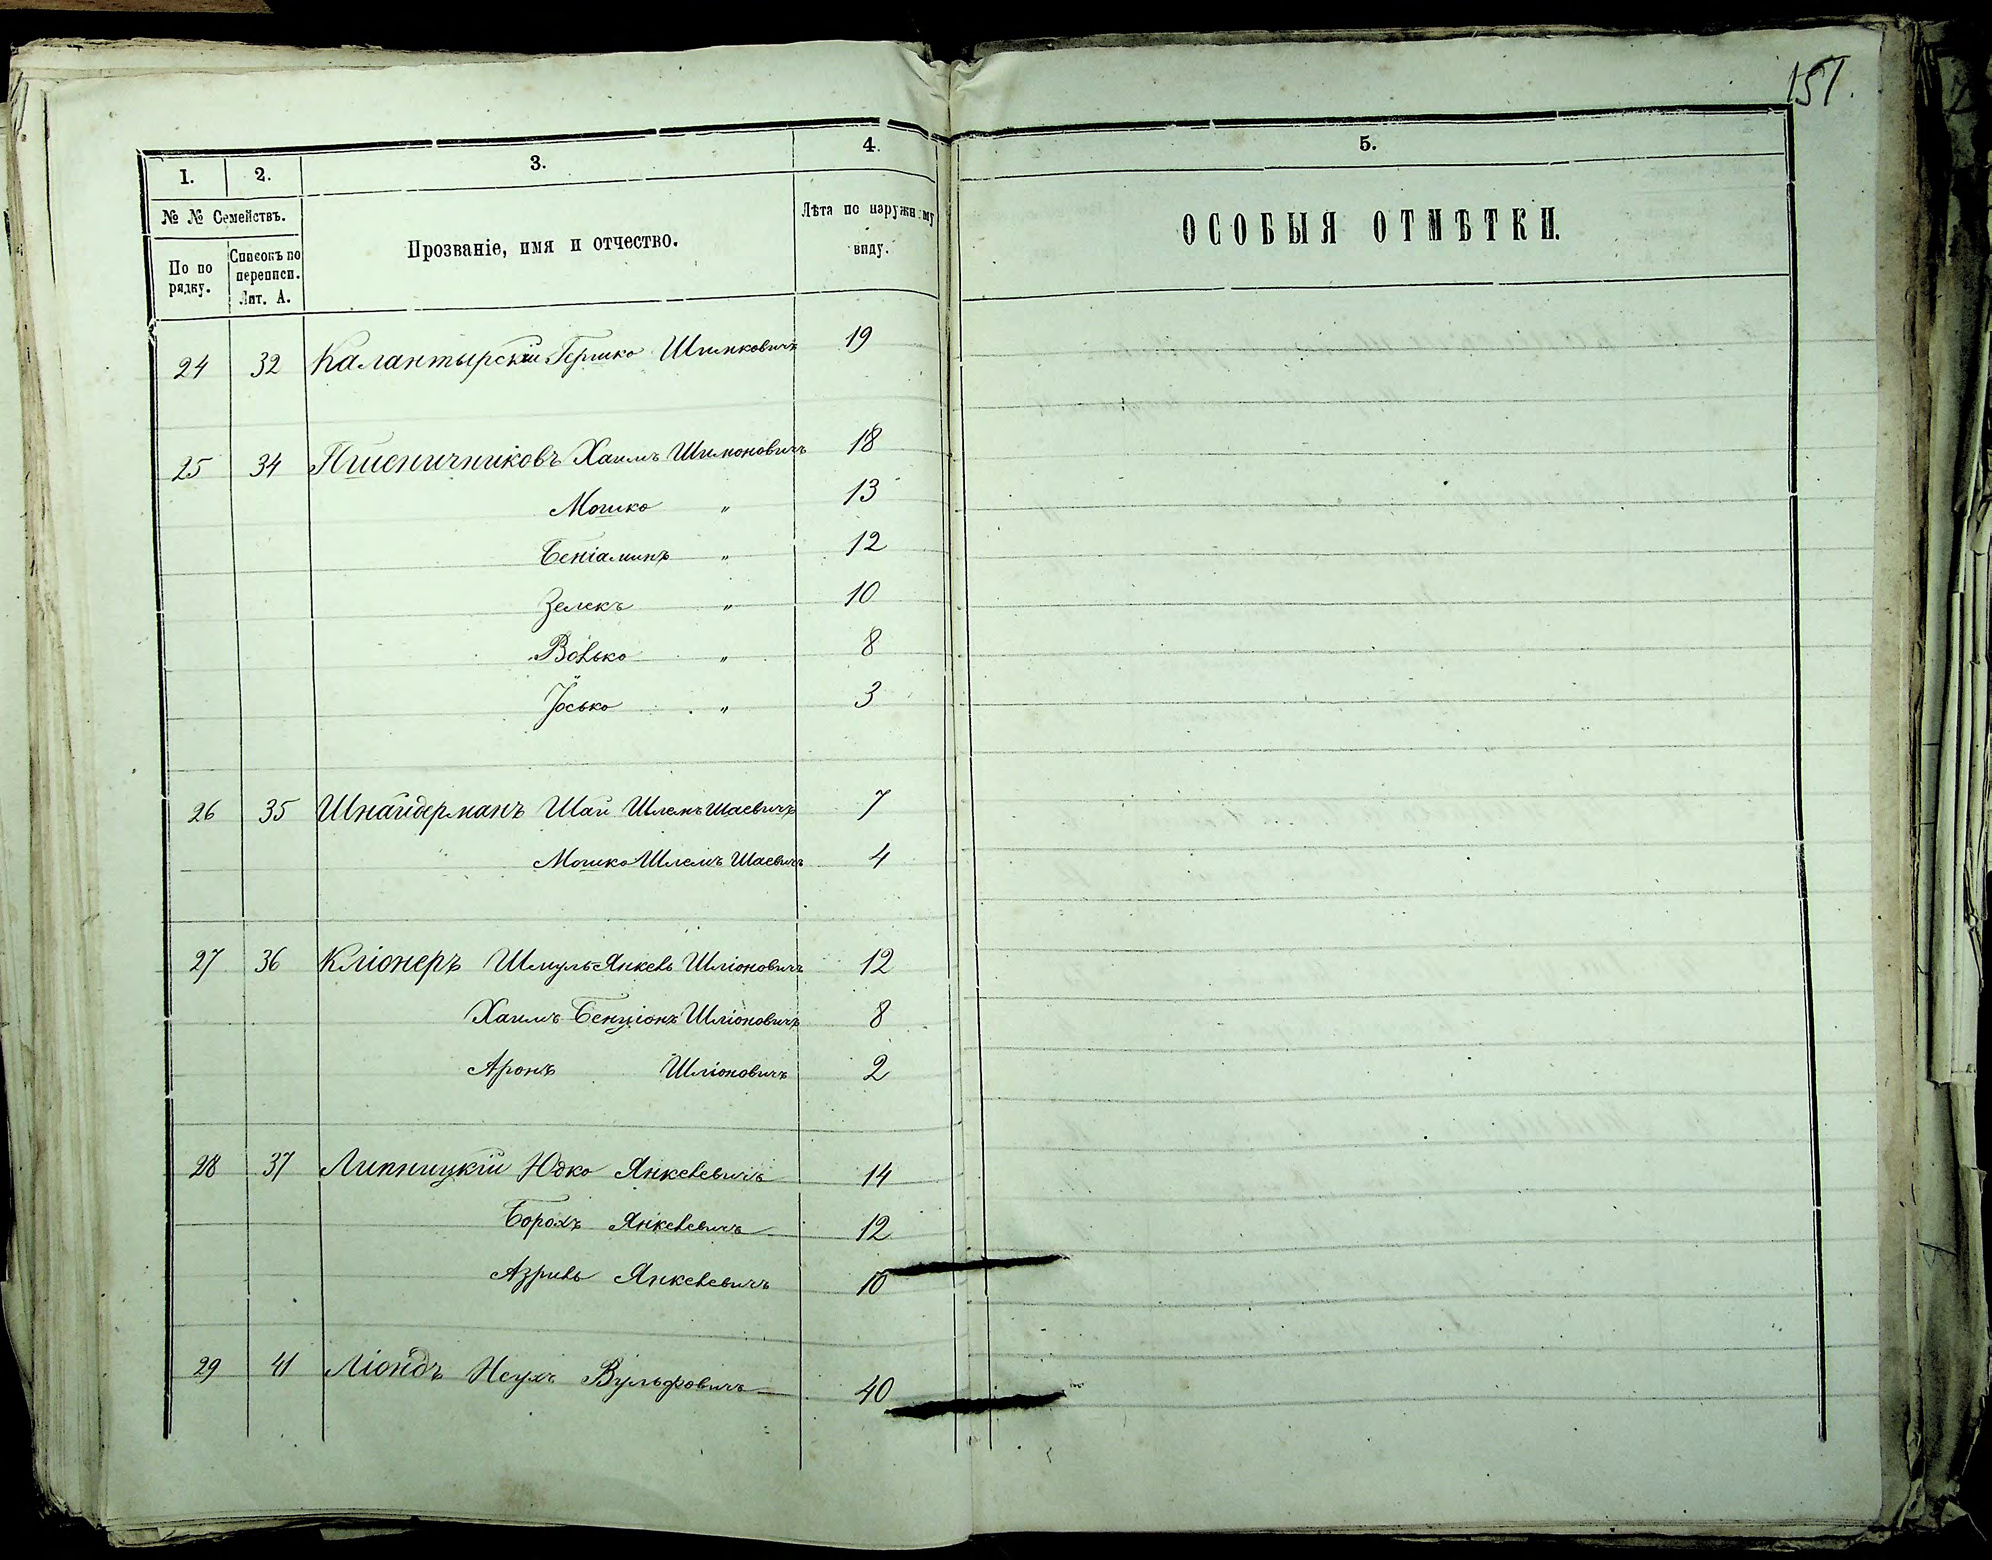 151.
1. 2. 3. 4. 5.
№ № Семействъ.
По по рядку.
Списокъ по переписи. Лит. А.
Прозваніе, имя и отчество.
Лѣта по наружному виду.
ОСОБЫЯ ОТМѢТКИ.
24 32 Калантырскій Гершко Шимковичъ 19
25 34 Пшеничниковъ Хаимъ Шимоновичъ 18
Мошко " 13
Беніаминъ " 12
Зелекъ " 10
Вовько " 8
Іосько " 3
26 35 Шнайдерманъ Шая Шлемъ Шаевичъ 7
Мошко Шлемъ Шаевичъ 4
27 36 Кліонеръ Шмуль Янкевъ Шліоновичъ 12
Хаимъ Бенціонъ Шліоновичъ 8
Аронъ Шліоновичъ 2
28 37 Липницкій Юдко Янкевевичъ 14
Борохъ Янкевевичъ 12
Азривъ Янкевевичъ 10
29 41 Ліондъ Нсухъ Вульфовичъ 40